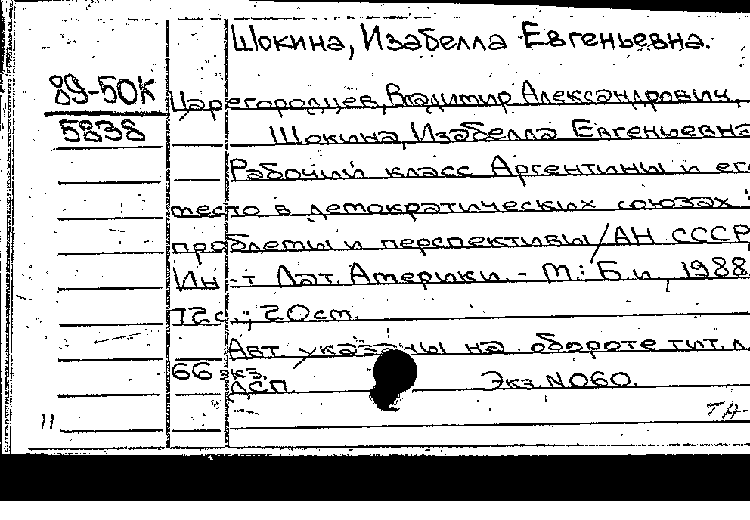 Шокина, Изабелла Евгеньевна.
89-50К
5838
Царегородцев, Владимир Александрович,
Шокина, Изабелла Евгеньевна
Рабочий класс Аргентины и его
место в демократических союзах:
проблемы и перспективы / АН СССР,
Ин-т Лат. Америки. - М.: Б.и., 1988
72с.; 20cm.
Авт. указаны на обороте тит. л.
66 экз.
ДСП. Экз. N 060.
11